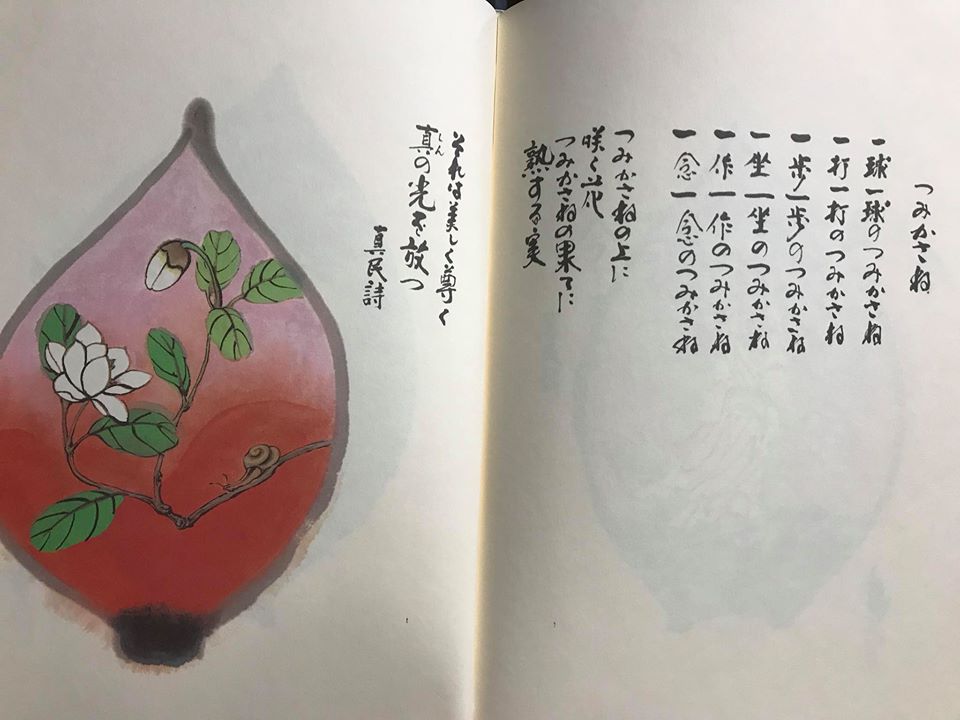 つみかさね
一球一球のつみかさね
一打一打のつみかさね
一歩一歩のつみかさね
一坐一坐のつみかさね
一作一作のつみかさね
一念一念のつみかさね
つみかさねの上に
咲く花
つみかさねの果てに
熟する実
それは美しく尊く
真の光を放つ
しん
真民詩